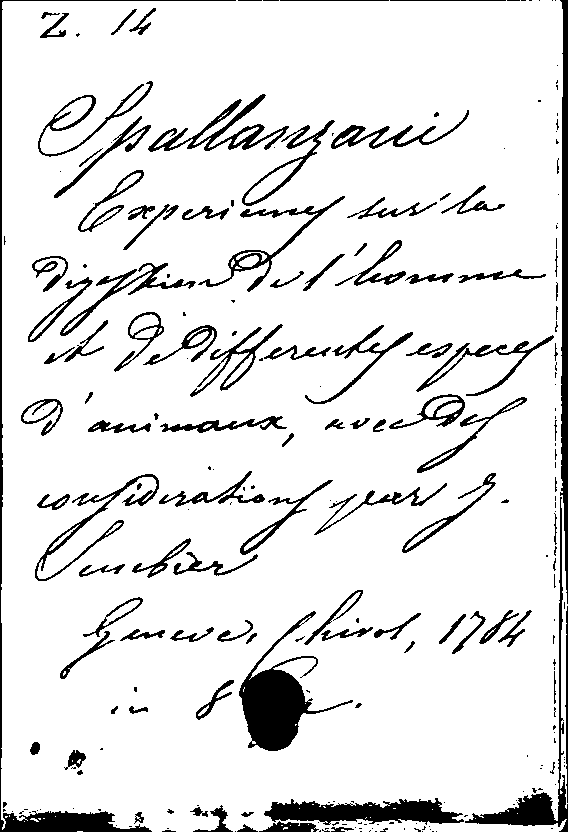 Z. 14
Spallanzani
Experiences sur la
digestion de l'homme
et de differentes especes
d'animaux, avec des
considerations par J.
Senebier
Geneve, Chirol, 1784
in 8